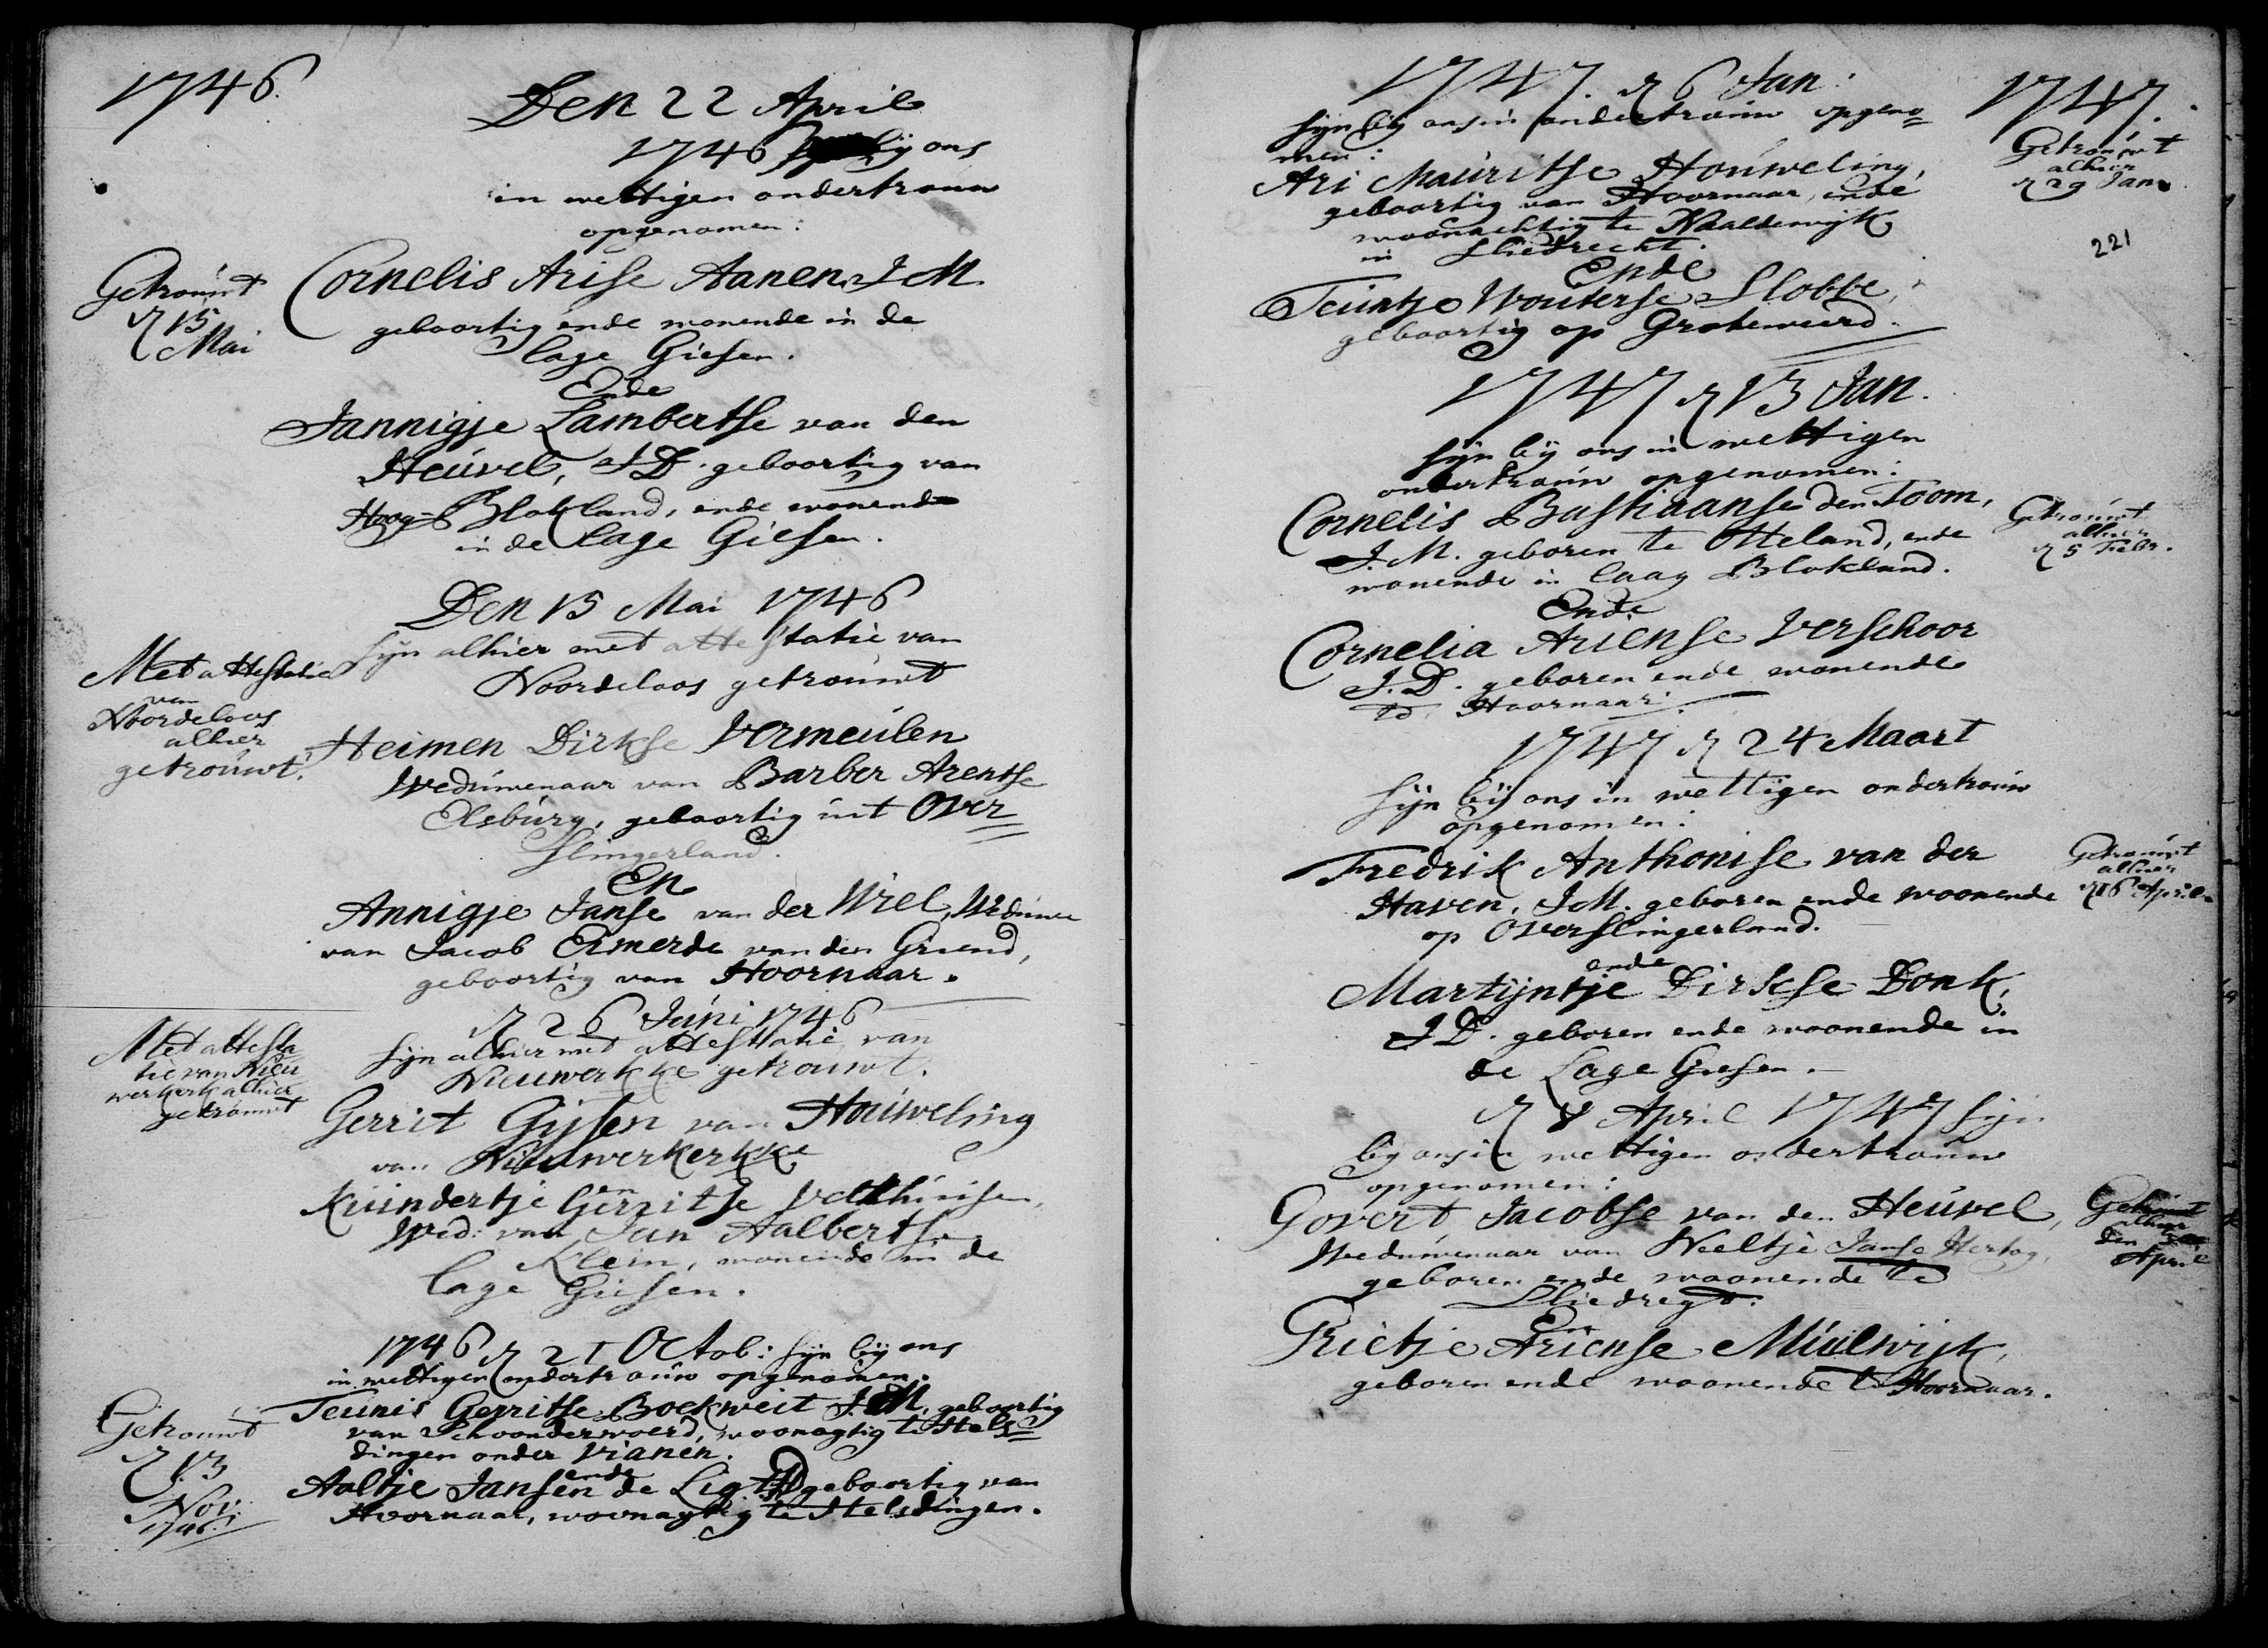 1746.
Den 22 April
1746 bij ons
in wettigen ondertrouw
opgenomen:
Getrouwt
15
Mai
Cornelis Arise Aanen J M.
geboortig ende wonende in de
lage Giesen.
Ende
Jannigje Lambertse van den
Heuvel, J D. geboortig van
Hoog=Blokland, ende wonende
in de lage Giessen.
Den 15 Mai 1746
Met attestatie
van
Noordeloos
alhier
getrouwt.
sijn alhier met attestatie van
Noordeloos getrouwt
Heimen Dirkse Vermeulen
Weduwenaar van Barber Arentse
Elsburg, geboortig uit Over=
slingerland.
En
Annigje Janse van der Wiel, Weduwe
van Jacob Ermerde van den Griend,
geboortig van Hoornaar.
26 Juni 1746
Met attesta
tie van Nieu
werkerk alhier
getrouwt
sijn alhier met attestatie van
Nieuwerkke getrouwt.
Gerrit Gijsen van Houweling
van Nieuwerkerkke
en
Kuindertje Gerritse Velthuisen,
Wed: van Jan Aalbertse
Klein, wonende in de
lage Giesen.
1746 21 Octob: sijn bij ons
in wettigen ondertrouw opgenomen.
Getrouwt
13
Nov:
1746.
Teunis Gerritse Boekweit J.M, geboortig
van Schoonderwoerd, woonagtig te Hels=
dingen onder Vianen.
ende
Aaltje Jansen de Ligt JD geboortig van
Hoornaar, woonagtig te Helsdingen.
1747. 6 Jan:
1747.
sijn bij ons in ondertrouw opgeno=
men:
Getrouwt
alhier
29 Jan.
221
Ari Mauritse Houweling,
geboortig van Hoornaar, ende
woonachtig te Naaldewijk
in Sliedrecht.
Ende
Teuntje Wouterse Slobbe,
geboortig op Grotewaerd.
1747 13 Jan.
sijn bij ons in wettigen
ondertrouw opgenomen:
Cornelis Bastiaanse den Toom,
J.M. geboren te Otteland, ende
wonende in laag Blokland.
Getrouwt
alhier
5 Febr.
Ende
Cornelia Ariense Verschoor
J.D. geboren ende wonende
te Hoornaar.
1747 24 Maart
sijn bij ons in wettigen ondertrouw
opgenomen:
Fredrik Anthonise van der
Haven, J.M. geboren ende woonende
op Overslingerland.
Getrouwt
alhier
16 April
ende
Martijntje Dirkse Donk,
J D. geboren ende woonende in
de Lage Giesen.
8 April 1747 sijn
bij ons in wettigen ondertrouw
opgenomen:
Govert Jacobse van den Heuvel,
Weduwenaar van Neeltje Janse Hertog,
geboren ende woonende te
Sliedregt.
Getrouwt
alhier
den
April
En
Grietje Ariense Muilwijk,
geboren ende woonende te Hoornaar.